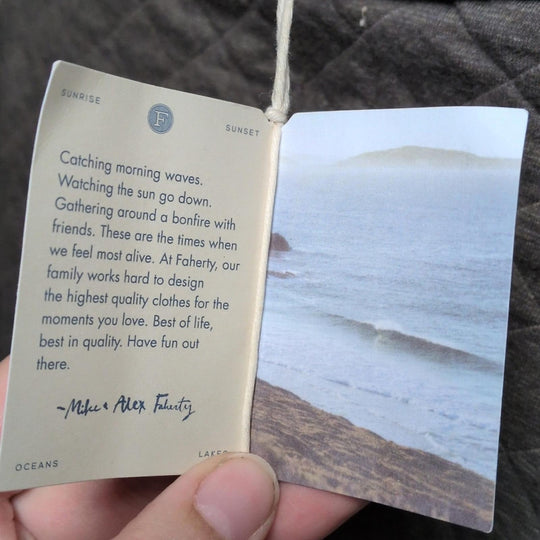 SUNRISE
F
SUNSET
Catching morning waves.
Watching the sun go down.
Gathering around a bonfire with
friends. These are the times when
we feel most alive. At Faherty, our
family works hard to design
the highest quality clothes for the
moments you love. Best of life,
best in quality. Have fun out
there.
~Mike & Alex Faherty
OCEANS
LAKES